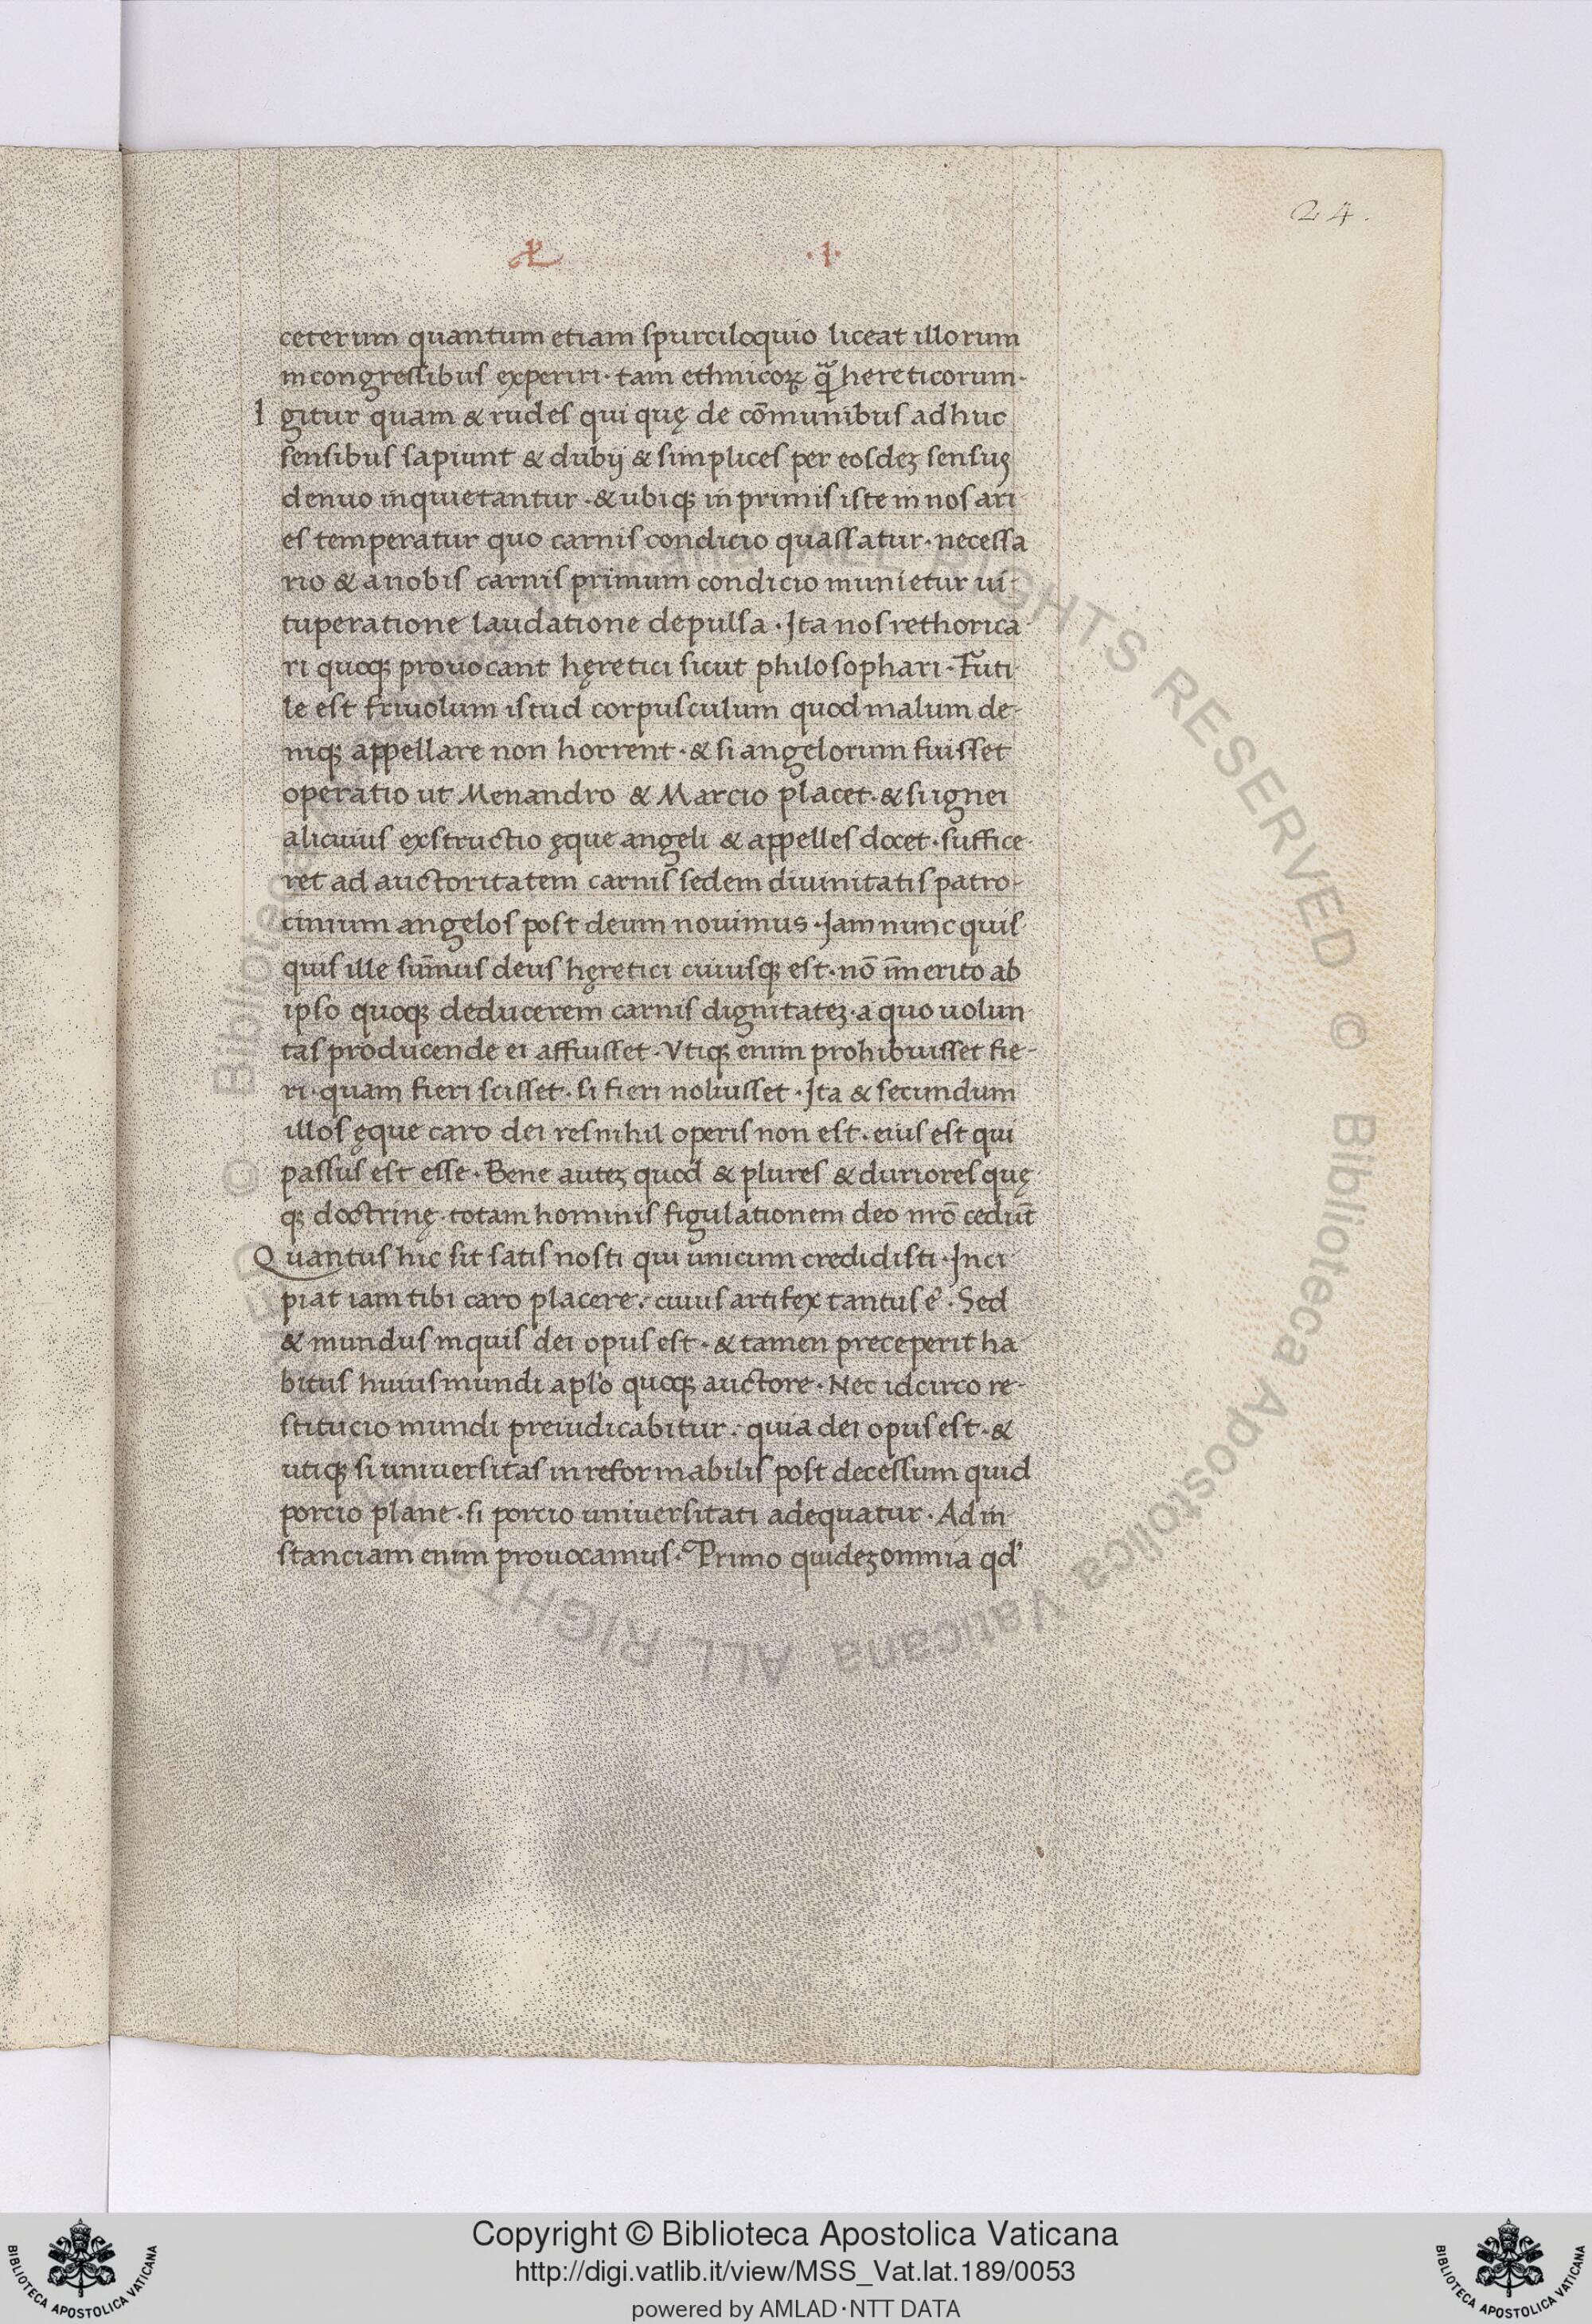 24.
·1·
ceterum quantum etiam spurciloquio liceat illorum
in congressibus experiri · tam ethnicoꝝ qͣ hereticorum ·
I gitur quam & rudes qui quę de cōmunibus adhuc
sensibus sapiunt & dubij & simplices per eosdeꝫ sensus
denuo inquietantur · & ubiqꝫ in primis iste in nos ari
es temperatur quo carnis condicio quassatur · necessa
rio & a nobis carnis primum condicio munietur ui-
tuperatione laudatione depulsa · Ita nos rethorica
ri quoqꝫ prouocant hęretici sicut philosophari · Futi
le est friuolum istud corpusculum quod malum de-
niqꝫ appellare non horrent · & si angelorum fuisset
operatio ut Menandro & Marcio placet · & si ignei
alicuius exstructio ęque angeli & appelles docet · suffice
ret ad auctoritatem carnis sedem diuinitatis patro-
cinium angelos post deum nouimus · Iam nunc quis
quis ille sum̄us deus hęretici cuiusqꝫ est · nō im̄erito ab
ipso quoqꝫ deducerem carnis dignitateꝫ · a quo uolun
tas producende ei affuisset · Vtiqꝫ enim prohibuisset fie-
ri · quam fieri scisset · si fieri noluisset · Ita & secundum
illos ęque caro dei res nihil operis non est · eius est qui
passus est esse · Bene auteꝫ quod & plures & duriores quę
qꝫ doctrinę · totam hominis figulationem deo nrō cedūt
Quantus hic sit satis nosti qui unicum credidisti · Inci
piat iam tibi caro placere · cuius artifex tantus ē · Sed
& mundus inquis dei opus est · & tamen preceperit ha
bitus huius mundi aplo quoqꝫ auctore · Nec idcirco re-
stitucio mundi preiudicabitur · quia dei opus est · &
utiqꝫ si uniuersitas inreformabilis post decessum quid
porcio plane · si porcio uniuersitati adequatur · Ad in
stanciam enim prouocamus · Primo quideꝫ omnia qd'
© Biblioteca Apostolica Vaticana ALL RIGHTS RESERVED © Biblioteca Apostolica Vaticana ALL RIGHTS RESERVED
BIBLIOTECA APOSTOLICA VATICANA
Copyright © Biblioteca Apostolica Vaticana
http://digi.vatlib.it/view/MSS_Vat.lat.189/0053
powered by AMLAD·NTT DATA
BIBLIOTECA APOSTOLICA VATICANA